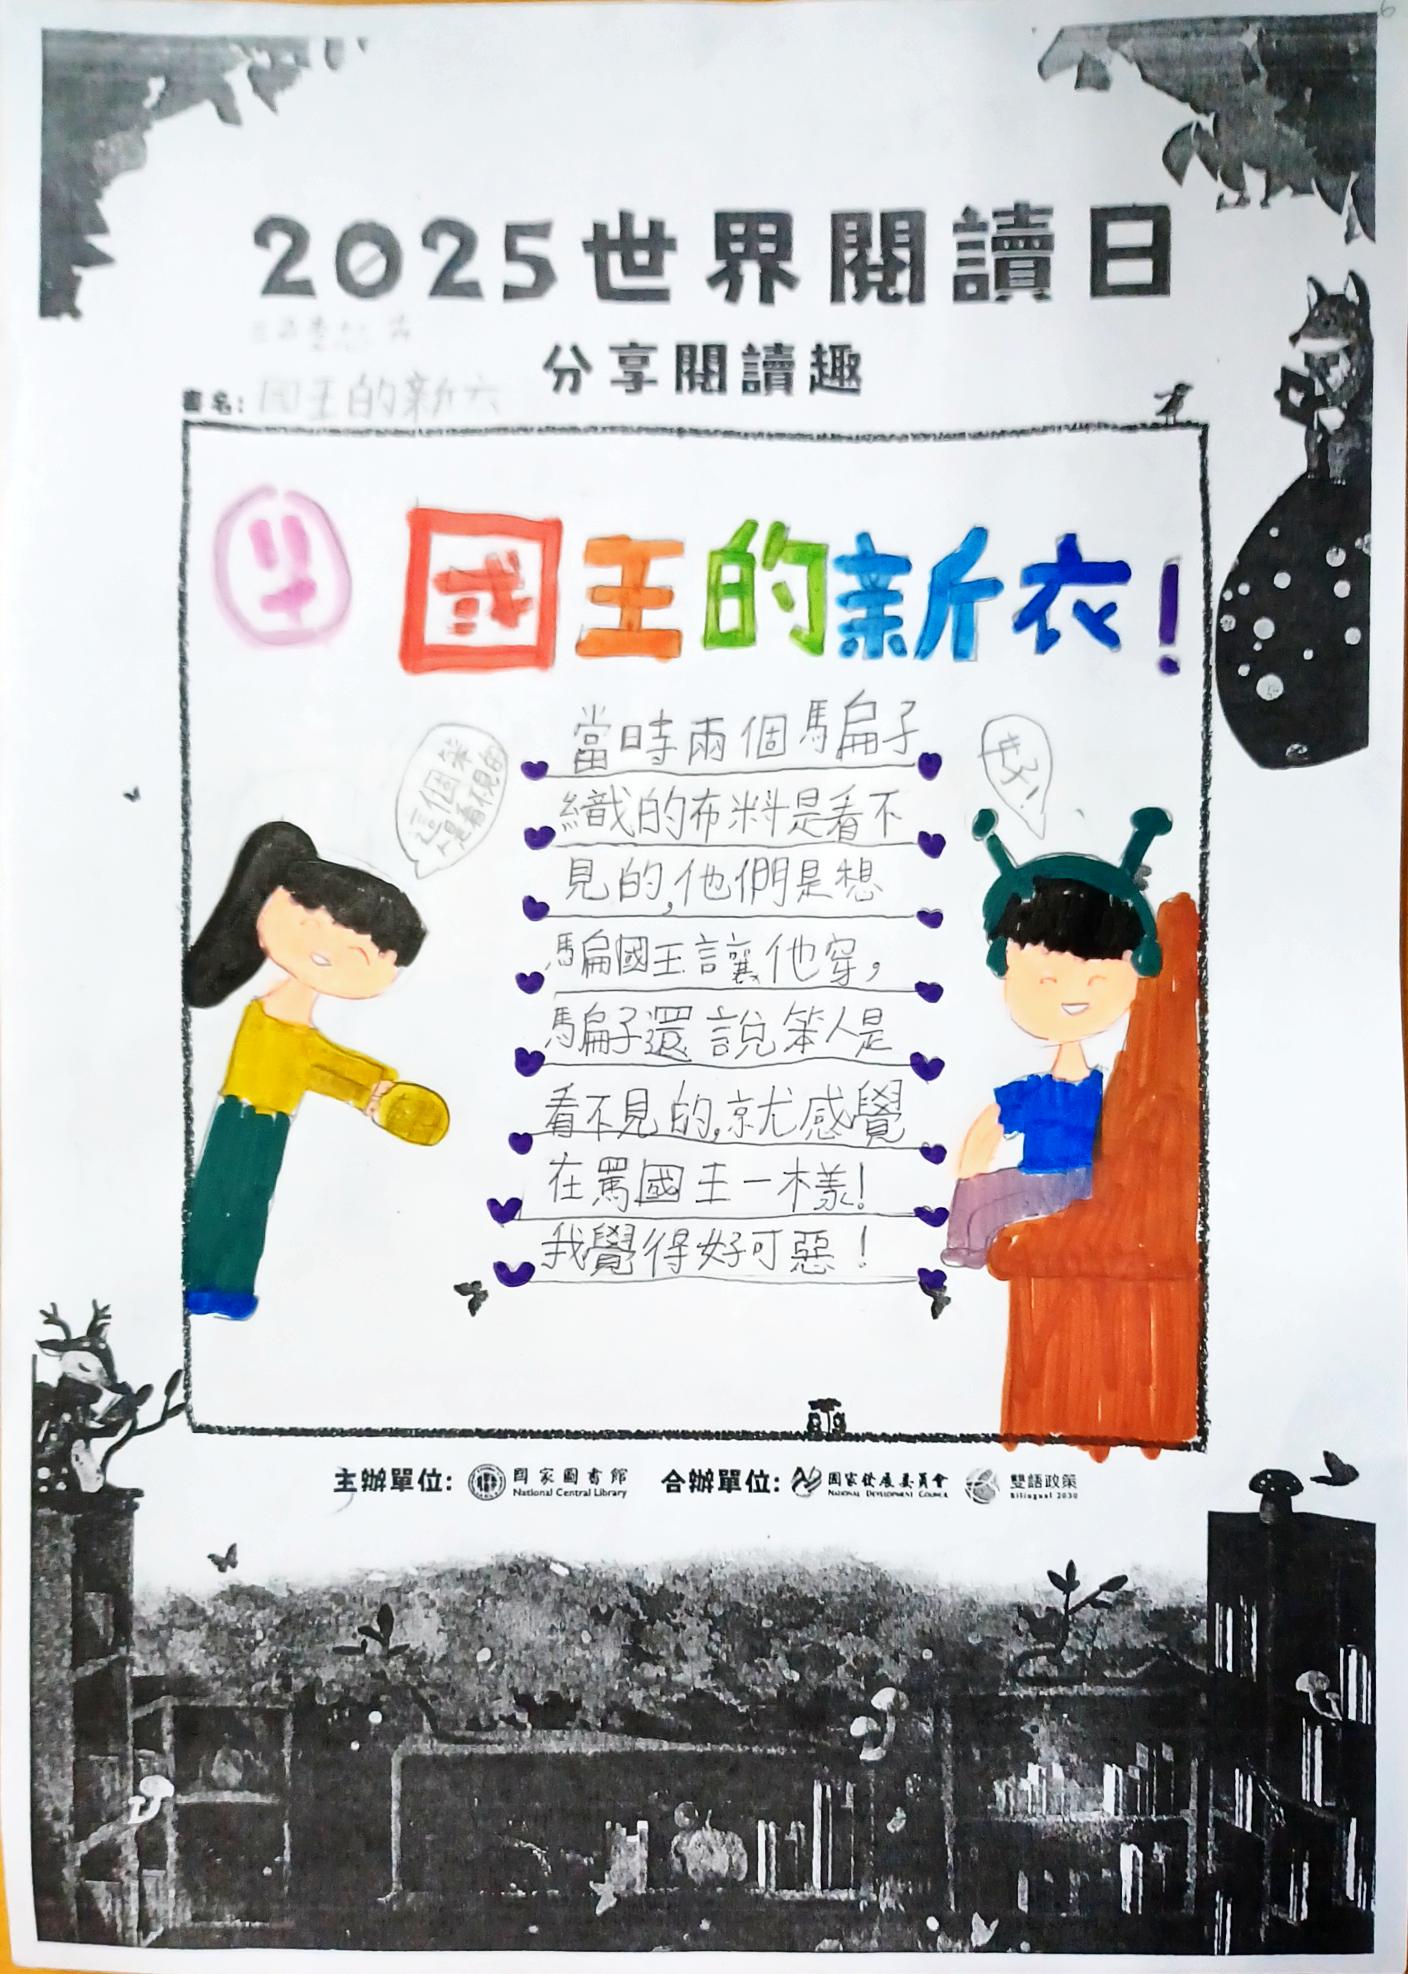 2025世界閱讀日
分享閱讀趣
書名: 國王的新衣
國王的新衣!
當時兩個騙子
織的布料是看不
見的,他們是想
騙國王讓他穿,
騙子還說笨人是
看不見的,就感覺
在罵國王一樣!
我覺得好可惡!
這個笨
是看不見的
好!
主辦單位: 國家圖書館 National Central Library 合辦單位: 國家發展委員會 National Development Council 雙語政策 Bilingual 2030